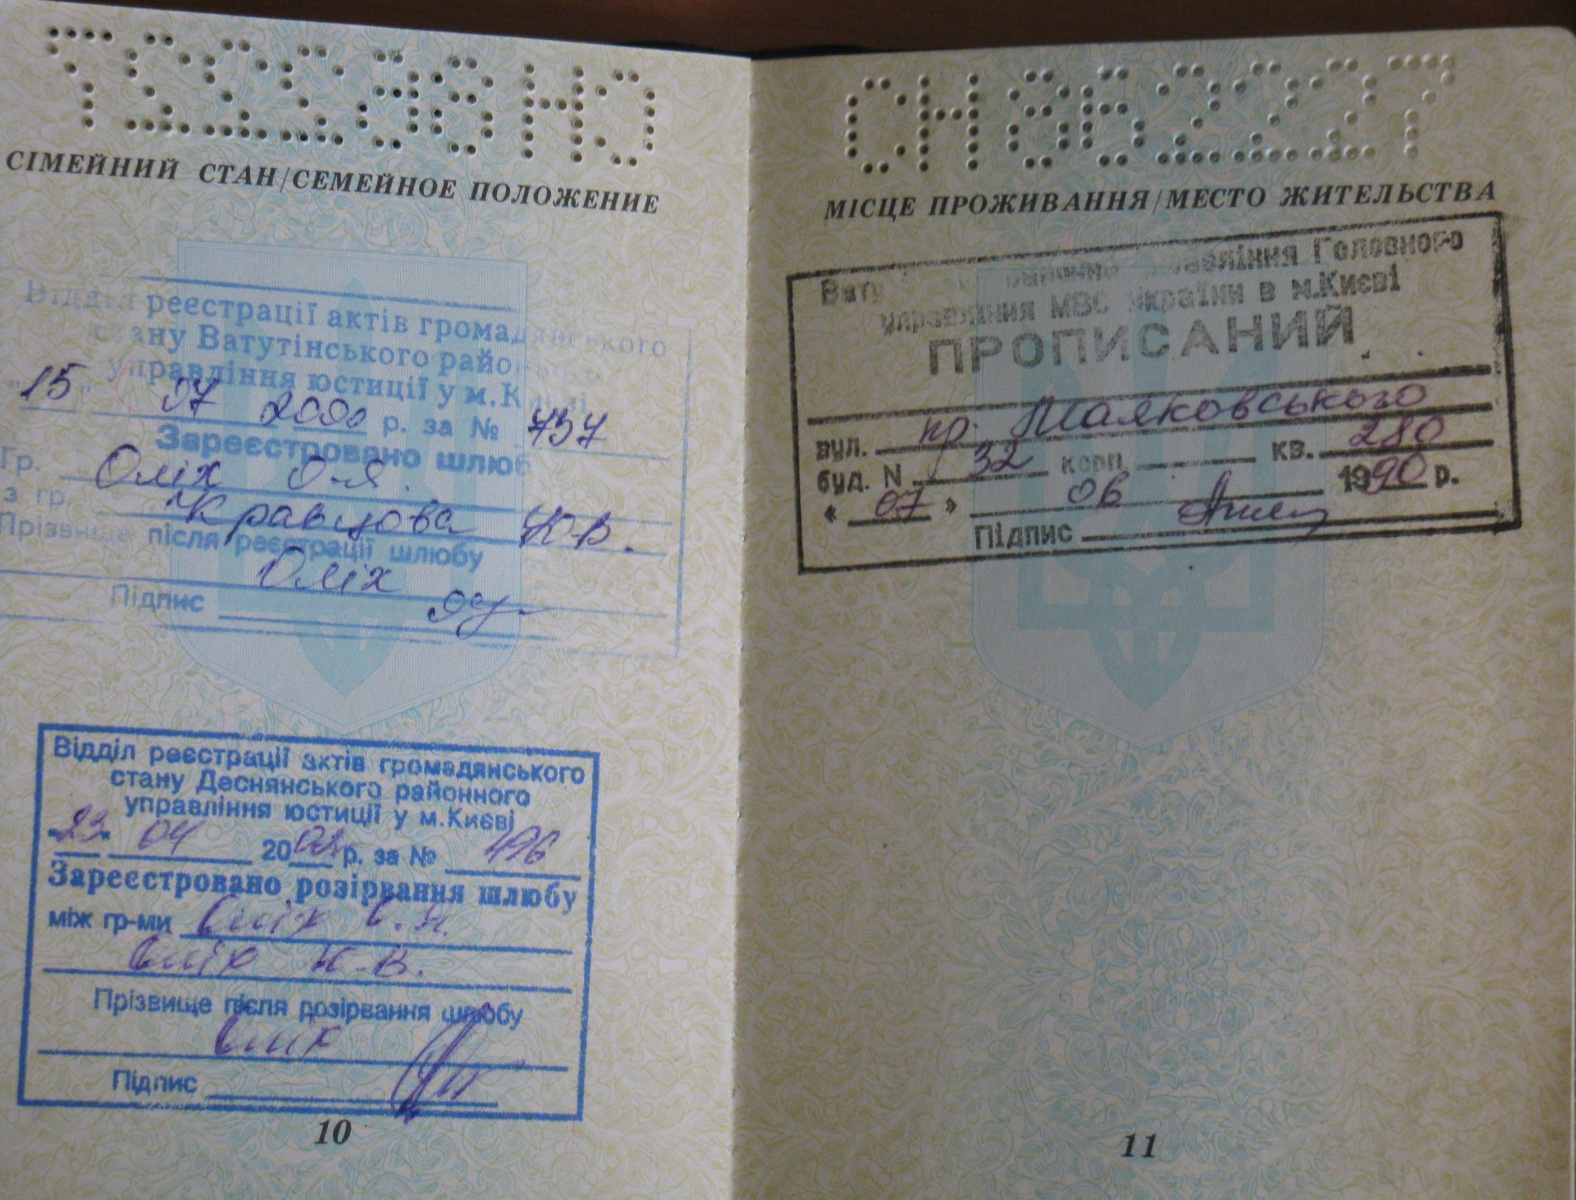 СІМЕЙНИЙ СТАН/СЕМЕЙНОЕ ПОЛОЖЕНИЕ
Відділ реєстрації актів громадянського
стану Ватутінського району
управління юстиції у м.Києві
"15" 07 2000 р. за № 737
Зареєстровано шлюб
Гр. Оліх О.Я.
з гр. Кравцова Ю.В.
Прізвище після реєстрації шлюбу
Оліх
Підпис
Відділ реєстрації актів громадянського
стану Деснянського районного
управління юстиції у м.Києві
"23" 04 2003 р. за № 496
Зареєстровано розірвання шлюбу
між гр-ми Оліх О.Я.
Оліх Ю.В.
Прізвище після розірвання шлюбу
Оліх
Підпис
10
СН 862227
МІСЦЕ ПРОЖИВАННЯ/МЕСТО ЖИТЕЛЬСТВА
управління Головного
управління МВС України в м.Києві
ПРОПИСАНИЙ
вул. пр. Маяковського
буд. N 32 корп. кв. 280
« 07 » 06 1990 р.
Підпис
11